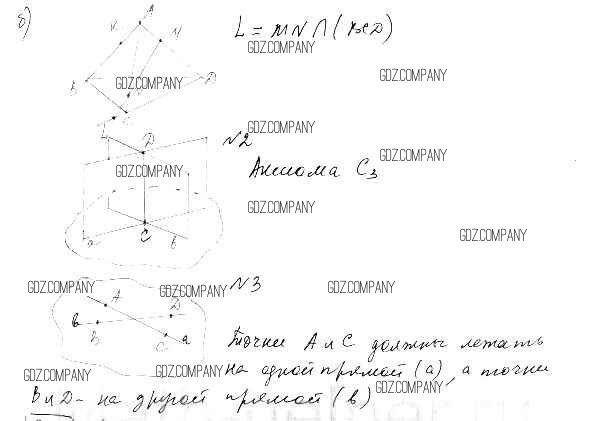 б)
A
K M
L = MN ∩ (BCD)
GDZ.COMPANY
GDZ.COMPANY
B D
GDZ.COMPANY
C
L
GDZ.COMPANY
D
N2
GDZ.COMPANY
GDZ.COMPANY
Аксиома C3
GDZ.COMPANY
GDZ.COMPANY
a C b
GDZ.COMPANY
GDZ.COMPANY
GDZ.COMPANY
N3
A
D
в
B
C a
Точки A и C должны лежать
GDZ.COMPANY
GDZ.COMPANY
на одной прямой (a), а точки
GDZ.COMPANY
B и D - на другой прямой (в)